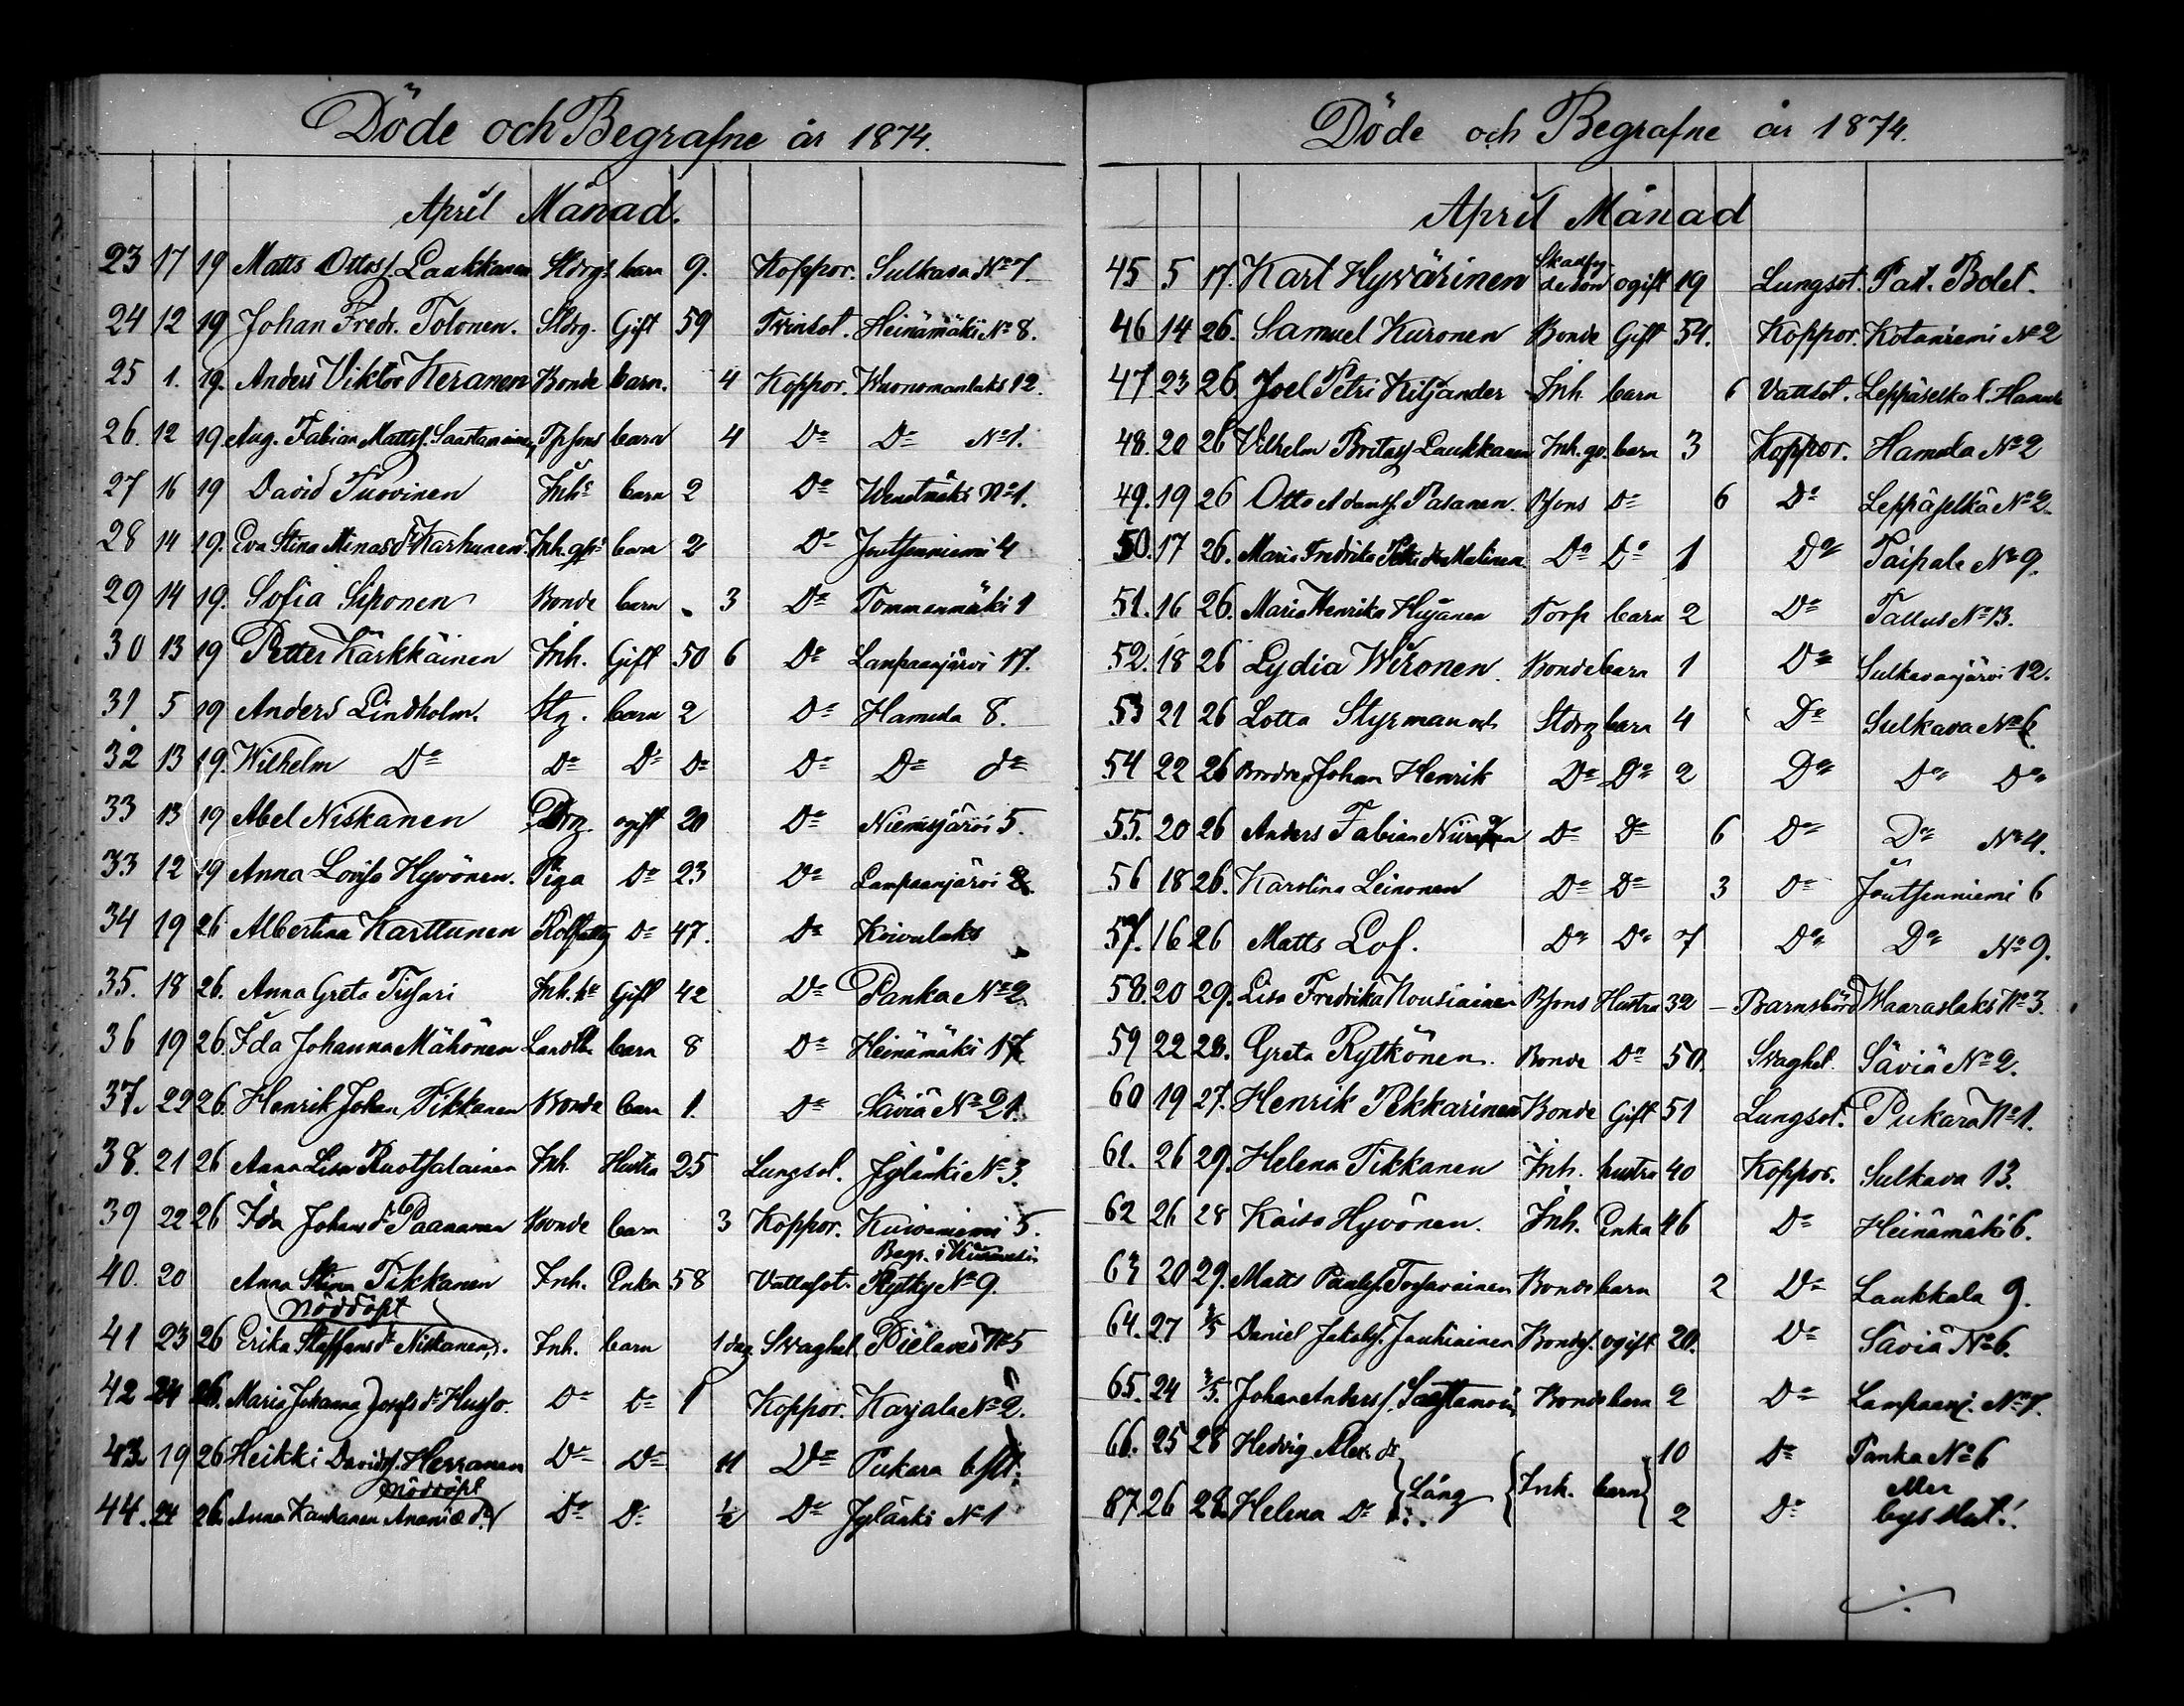 Döde och Begrafne år 1874.
April Månad.
23 17 19 Matts Ottos. Laukkanen Stdrg. barn 9. Koppor. Sulkava No 7.
24 12 19 Johan Fredr. Tolonen. Stdrg. Gift 59 Tvinsot. Heinämäki No 8.
25 1. 19. Anders Viktor Keranen Bonde barn. 4 Koppor. Wuonomanlaks 12.
26. 12 19. Aug. Fabian Mattss. barn 4 Do Do No 1.
27 16 19 David Tuovinen Inhs barn 2 Do No 1.
28 14 19. Eva Stina Minas dr Karhunen Inh. barn 2 Do Joutsenniemi 4
29 14 19. Sofia Siponen Bonde barn 3 Do Tommonmäki 1
30 13 19 Petter Kärkkäinen Inh. Gift 50 6 Do Lampaanjärvi 17.
31 5 19 Anders Lindholm. Stg. barn 2 Do Hamula 8.
32 13 19. Wilhelm Do Do Do Do Do Do do
33 13 19 Abel Niskanen ogift 20 Do Niemisjärvi 5.
33 12 19 Anna Lovisa Hyvönen. Piga Do 23 Do Lampaanjärvi 2.
34 19 26 Albertina Karttunen Do 47. Do Koivulaks
35. 18 26. Anna Greta Gift 42 Do Panka No 2.
36 19 26. Ida Johanna Mähönen barn 8 Do Heinämäki 17
37. 22 26. Henrik Johan Tikkanen Bonde barn 1. Do Säviä No 21.
38. 21 26 Anna Lisa Ruotsalainen Inh. Hustru 25 Lungsot. Jylänki No 3.
39 22 26 Ida Johans dr Paananen Bonde barn 3 Koppor. Kuivaniemi 5.
Begr. i
40. 20 Anna Stina Tikkanen Inh. Enka 58 Vattusot. Rytky No 9.
nöddöpt
41 23 26 Erika Staffans dr Niskanen. Inh. barn 1 dag Svaghet. Pielaves No 5
42 24 26. Maria Johanna Josefs dr Husso. Do Do 1 Koppor. Karjala No 2.
43. 19 26 Heikki Davids. Herranen Do Do 11 Do Pukara
nöddöpt
44. 24 26. Anna Kauhanen Do Do ½ Do Jylänki No 1
Döde och Begrafne år 1874.
April Månad
45 5 17. Karl Hyvärinen ogift 19 Lungsot.
46 14 26. Samuel Kuronen Bonde Gift 54. Koppor. Kotaniemi No 2
47 23 26. Joel Petri Kiljander Inh. barn 6 Vattsot. Leppäselkä
48. 20 26 Vilhelm Britas. Laukkanen Inh. barn 3 Koppor. Hamula No 2
49. 19 26 Otto Adams. Pasanen. Do 6 Do Leppäselkä No 2.
50. 17 26. Maria Fredrika Malinen Do Do 1 Do Taipale No 9.
51. 16 26. Maria Henrika Hujanen Torp barn 2 Do Tallus No 13.
52. 18 26 Lydia Wironen. Bonde barn 1 Do Sulkavanjärvi 12.
53 21 26 Lotta Styrman Stdrg barn 4 Do Sulkava No 6.
54 22 26 Johan Henrik Do Do 2 Do Do Do
55. 20 26 Anders Fabian Do Do 6 Do Do No 4.
56 18 26. Karolina Leinonen Do Do 3 Do Joutsenniemi 6
57. 16 26 Matts Lof. Do Do 7 Do Do No 9.
58. 20 29. Lisa Fredrika Nousiainen Hustru 32 – Barnsbörd Waaraslaks No 3.
59 22 28. Greta Rytkönen. Bonde Do 50. Svaghet. Säviä No 2.
60 19 27. Henrik Pekkarinen Bonde Gift 51 Lungsot. Pukara No 1.
61. 26 29. Helena Tikkanen Inh. hustru 40 Koppor. Sulkava 13.
62 26 28 Kaisa Hyvönen. Inh. Enka 46 Do Heinämäki 6.
63 20 29. Matts Paulss. Tossavainen Bonde barn 2 Do Laukkala 9.
64. 27 2/5 Daniel Jakobs. Jauhiainen Bondes. ogift 20. Do Säviä No 6.
65. 24 3/5. Johan Anders s. Bonde barn 2 Do Lampaanj. No 7.
66. 25 28 Hedvig Alex. dr 10 Do Panka No 6
Läng Inh. barn
87 26 28. Helena Do 2 Do